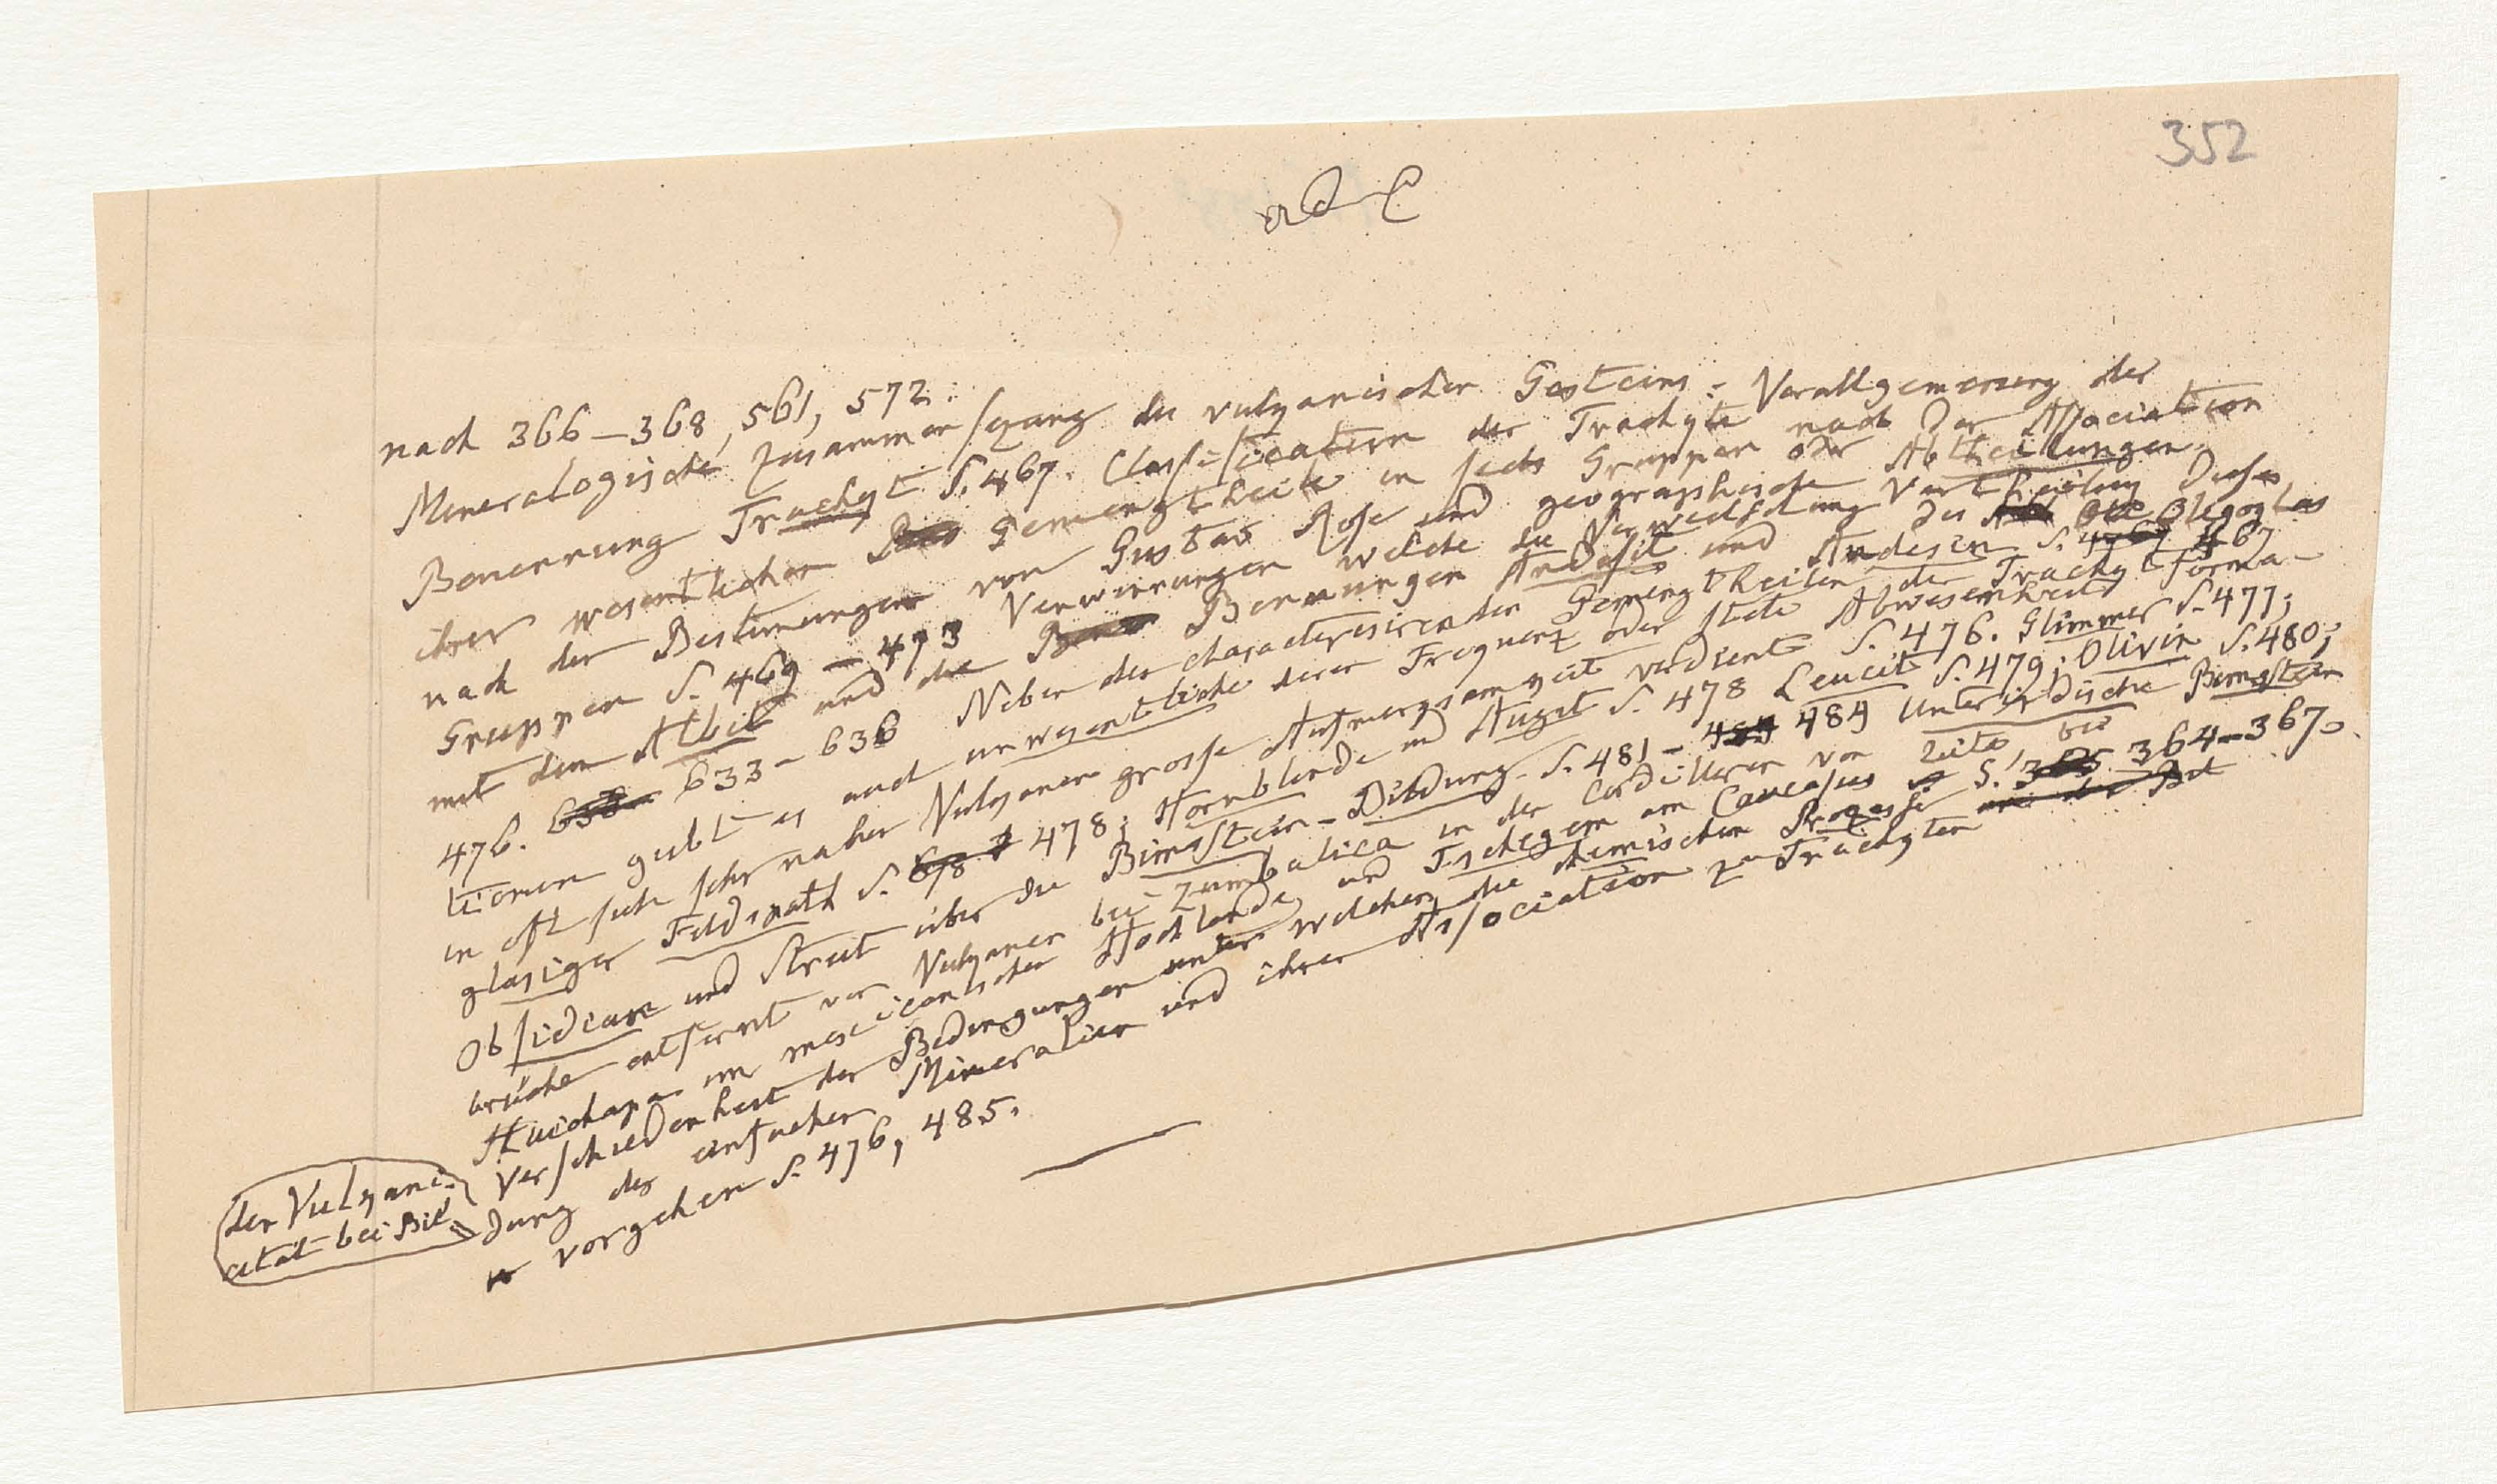 352
nach 366–368, 561, 572.
Mineralogische Zusammensezung des vulkanischen Gesteins: Verallgemeinerung der
Benennung Trachyt S. 467. Classification der Trachyte nach der Association
ihrer wesentlichen Gemengtheile in sechs Gruppen oder Abtheilungen,
nach den Bestimungen von Gustav Rose und geographische Vertheilung dieser
Gruppen S. 469 – 473 Verwirrungen welche die Verwechslung des Oligoglas
mit dem Albit und die Benennungen Andesit und Andesin S. 467
476. 633–636 Neben den characterisirenden Gemengtheilen der Trachyt Forma-
tionen giebt es auch unwesentliche deren Frequenz oder stete Abwesenheit
in oft sich sehr nahen Vulkanen grosse Aufmerksamkeit verdient S. 476. Glimmer S. 477;
glasiger Feldspath S. 478; Hornblende und Augit S. 478 Leucit S. 479; Olivin S. 480;
Obsidiane und Streit über die Bimsstein-Bildung S. 481 – 484 Unterirdische Bimstein
brüche entfernt von Vulkanen bei Zumbalica in den Cordilleren von Quito bei
Huichapa im mexicanischen Hochlande und Tschegem am Caucasus S. 364–367.
Verschiedenheit der Bedingungen unter welchen die chemischen Prozesse
der Vulkani-
cität bei Bil
dung der einfachen Mineralien und ihrer Association zu Trachyten
vorgehen S. 476, 485.